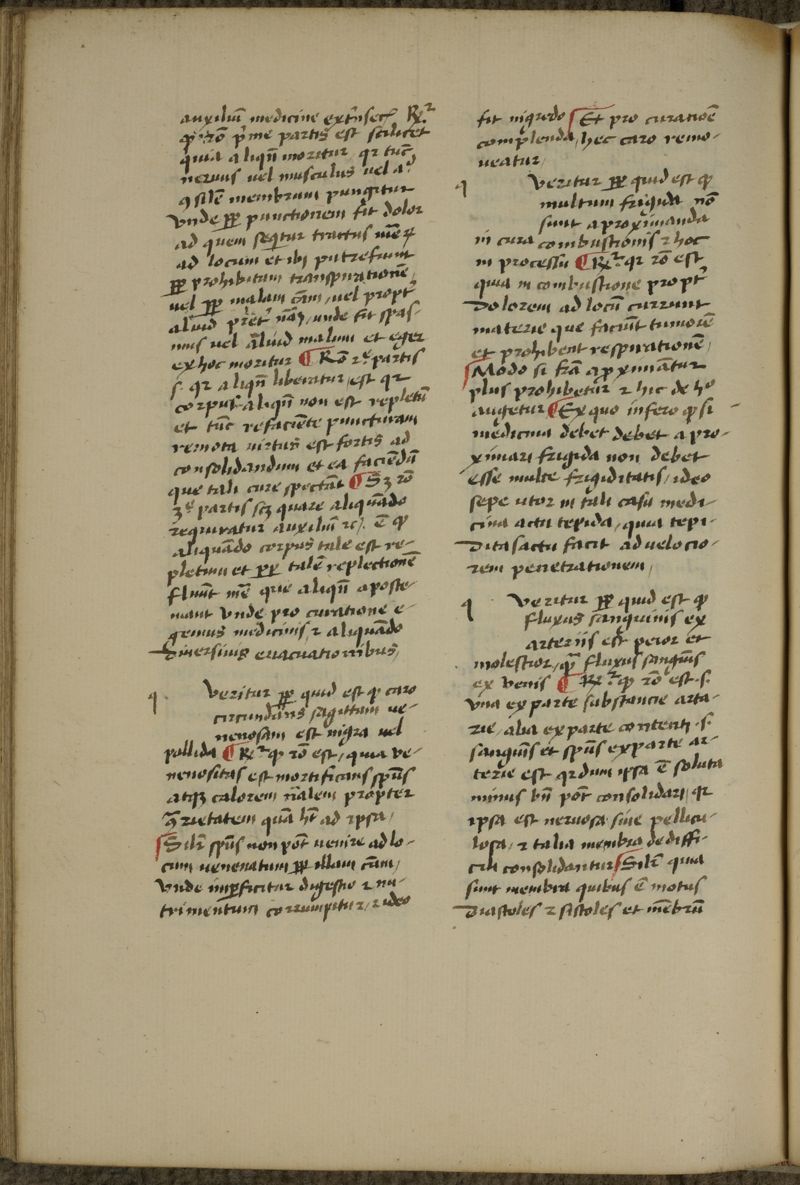 auxiliū medicine extrīsecꝰ Rꝰ
qꝫ rō pͥme partis est scilicet
quia aliqñ moritur qr tūc
neruus uel musculus uel aͥ
ꝯsīle membrum pungitur
Vnde ꝓpͭ punctionem fit dolor
ad quem seqͥtur tractus mēꝝ
ad locum et ibi putrefiunt
ꝓpͭ prohibitam transpirationē
uel ꝓpͭ malam cām / uel propt
aliud pͥter nāꝫ / unde fit spas-
mus uel aliud malum et eger
ex hoc moritur ¶ Rō 2ᵉ partis
s. qr aliqñ liberatur / est qr
corpus aliqñ non est repletū
et tūc refaciēte puncturam
remota uirtus est fortis ad
consolidandum et ea faciēdū
que tali cure spectāt ¶ Sꝫ rō
3ᵉ partis scꝫ quare aliquādo
requiratur auxiliū ꝛcͣ. ē qꝫ
aliquādo corpus tale est re-
pletum et ꝓpͭ talē repletionē
fluūt mē que aliqñ aposte-
mant Vnde pro curatione e-
gemus medicinis / ⁊ aliquādo
Diuersiuis euacuationibus /
q Veritur ꝓpͭ quid est qꝫ caro
circundans sagittam ue-
nenosam est nigra uel
pallida ¶ Rꝰ qꝫ rō est / quia ve-
nenositas est mortificans spūs
atqꝫ calorem nālem propter
ꝯͣrietatem quā hꝫ ad ipsa /
Silr spūs non pōt uenire ad lo-
cum uenenatum ꝓpͭ illam cām /
Vnde imperficitur digestio ⁊ nu-
trimentum corrumpitur / ⁊ ideo
fit nigredo Et pro curatiōe
complenda / hec caro remo-
ueatur /
q Veritur ꝓpͭ quid est qꝫ
multum frigida nō
sunt aproximanda
in cura combustionis ⁊ hoc
in processu ¶ Rꝰ qr rō est
quia in combustione propt
Dolorem ad locū currunt
materie que faciūt tumorē
et prohibent respirationē /
Modo si fͥa apximātur
plus prohibetur ⁊ hic de hͦ
augetur ¶ Ex quo infero qꝫ si
medicina debet debet apro-
ximari frigida non debet
esse multe frigiditatis / ideo
sepe utor in tali casu medi-
cina actu tepida / quia tepi-
Ditas actu facit ad uelocio-
rem penetrationem /
q Veritur ꝓpͭ quid est qꝫ
fluxus sanguinis ex
arteriis est peior et
molestior / qͣ fluxus sangͥnis
ex venis ¶ Rꝰ qꝫ rō est .s.
Vna ex parte substancie arta-
rie / alia ex parte contenti .s.
sanguīs et spūs ex parte ar-
terie est qr dum ipsa ē soluta
minus bñ pōt consolidari / qr
ipsa est neruosa siue pellicu-
losa / ⁊ talia membra de diffi-
cili consolidantur Silr quia
sunt membra quibus ē motus
Diastoles ⁊ sistoles et mēbrū